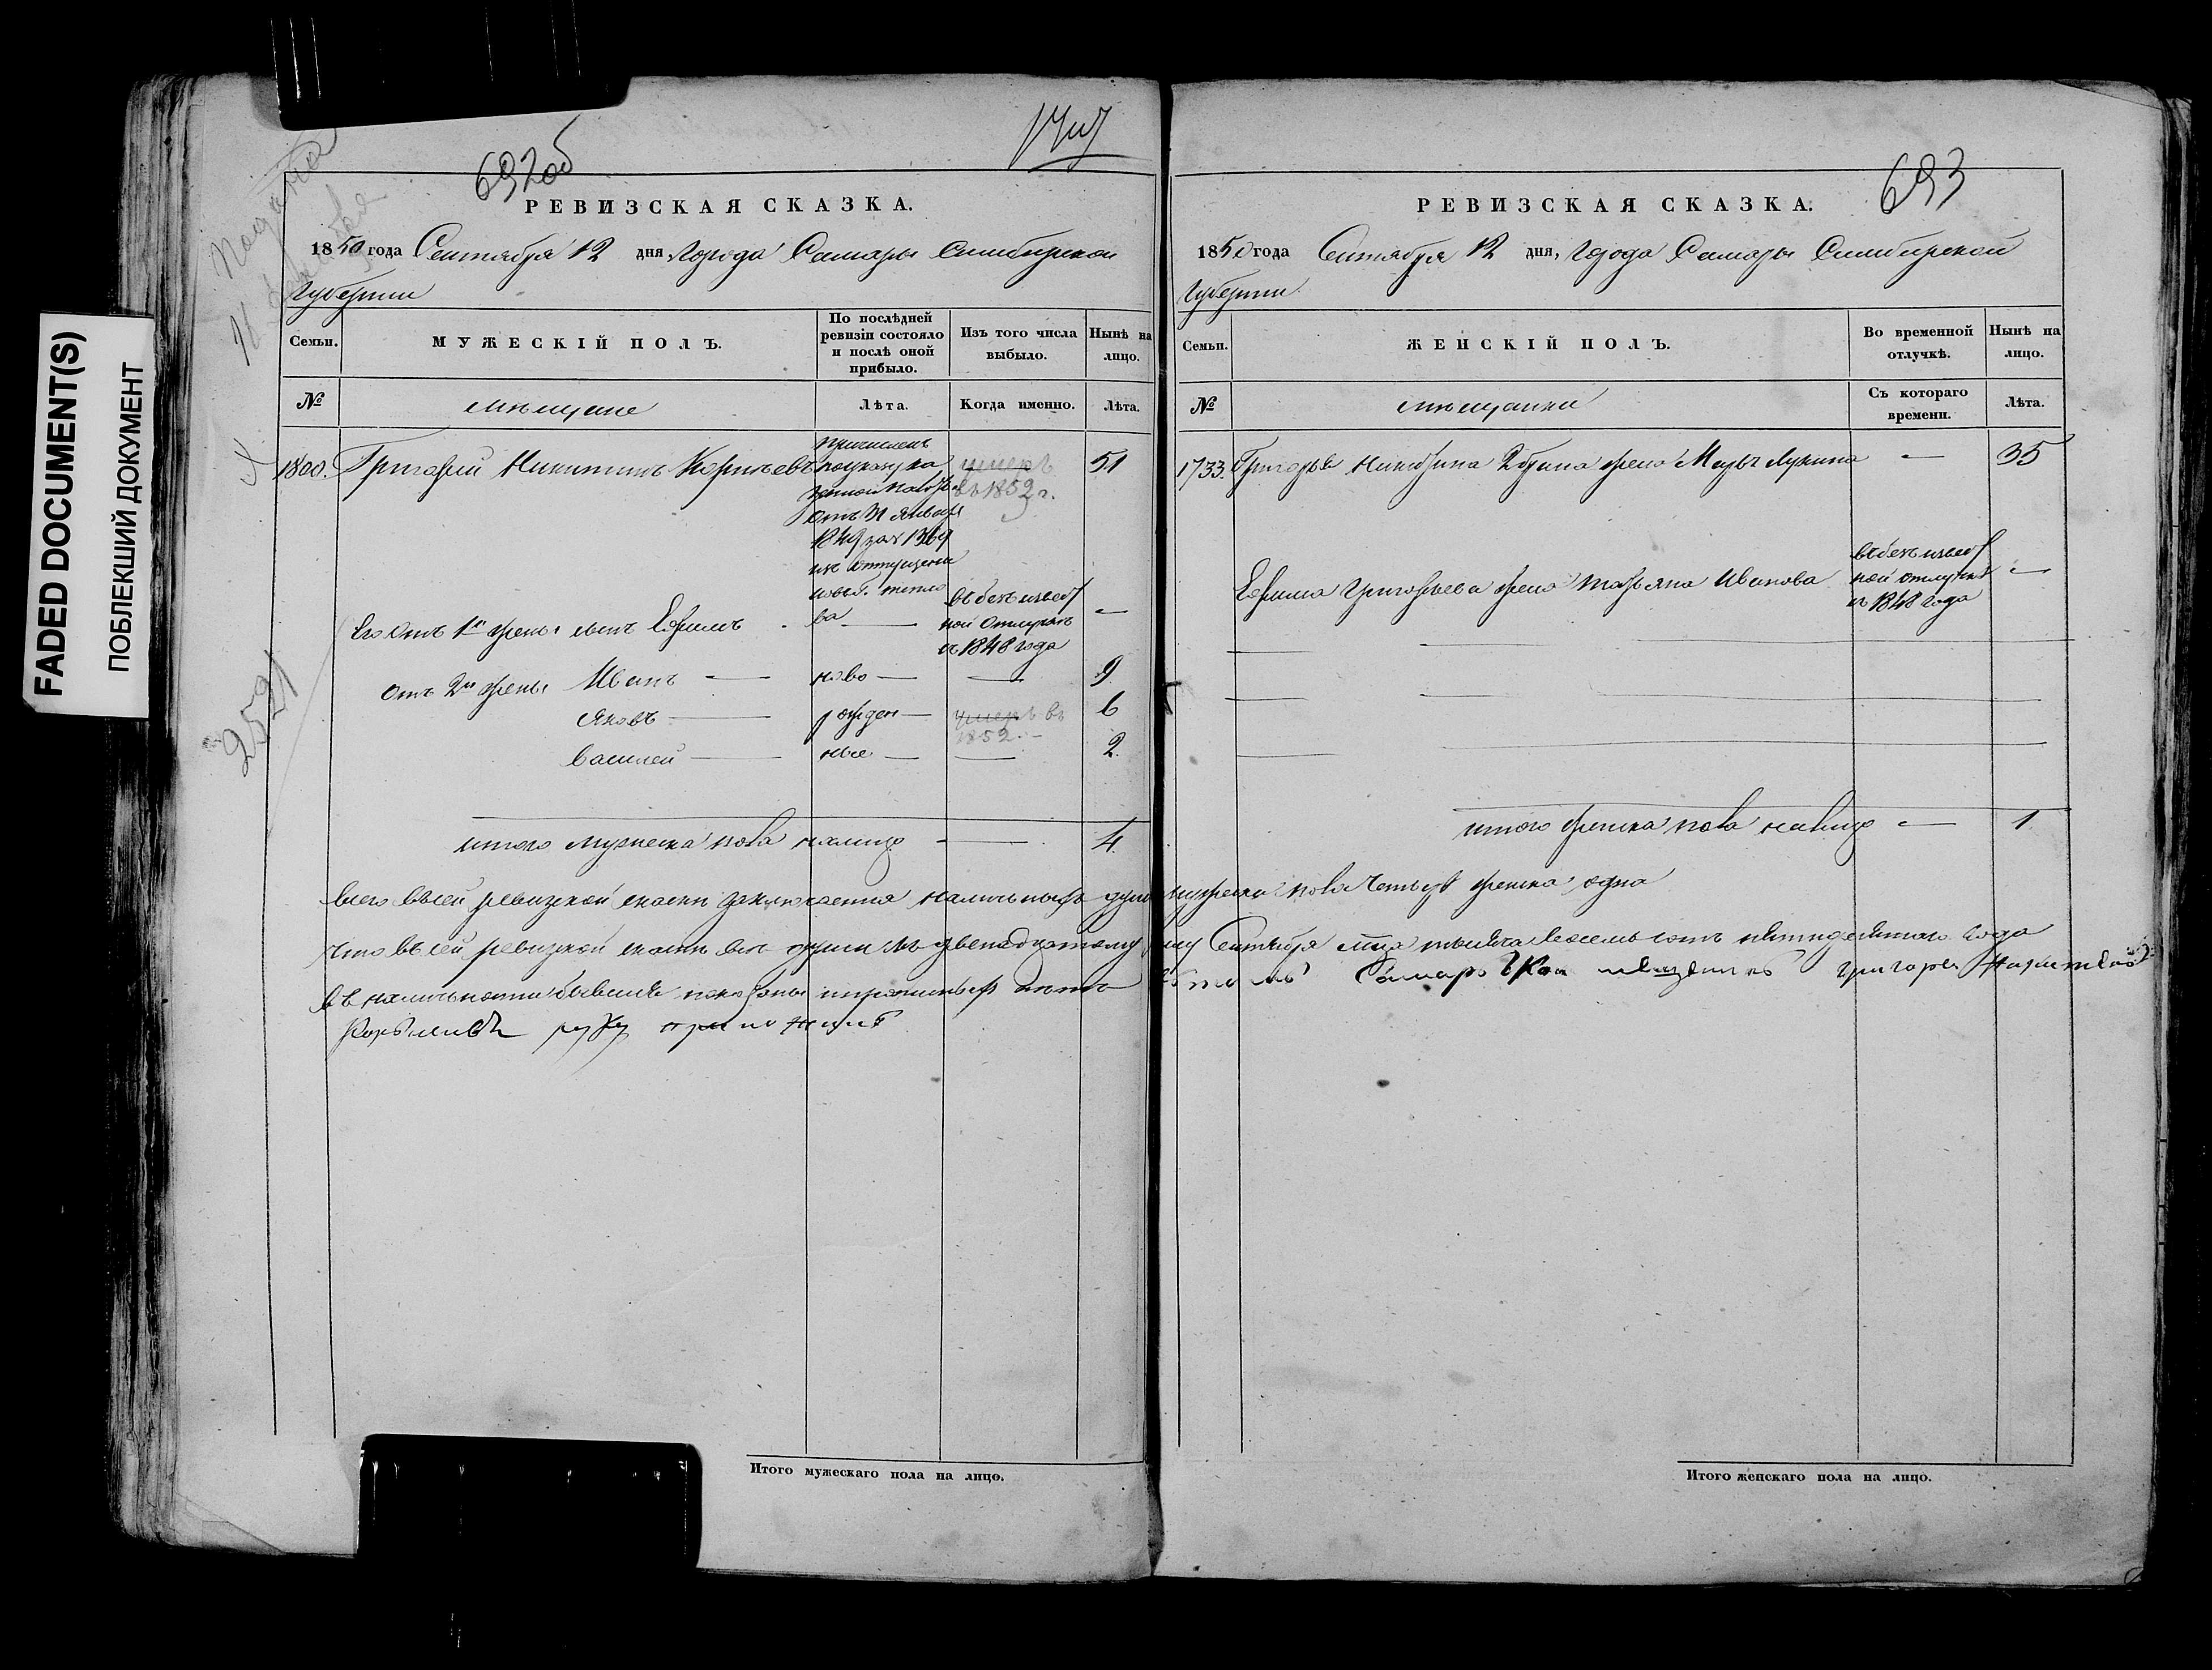 FADED DOCUMENT(S)
ПОБЛЕКШИЙ ДОКУМЕНТ
692об
РЕВИЗСКАЯ СКАЗКА.
1850 года Сентября 12 дня, Города Самары Симбирской
Губернии
Семьи.
МУЖЕСКІЙ ПОЛЪ.
По послѣдней ревизіи состояло и послѣ оной прибыло.
Изъ того числа выбыло.
Нынѣ на лицо.
№
мещане
Лѣта.
Когда именно.
Лѣта.
1800. Григорий Никитинъ
51
умеръ
въ 1852 г.
причисленъ
по указу ка
от 31 Января
1849 за № 1369
Его отъ 1й жены сынъ Ефимъ
ва
въ безъизвест
ной отлучке
с 1848 года
—
отъ 2й жены Иванъ — ново — — 9
Яковъ — рожден — умеръ въ 1852. 6
Василей — ные — — 2.
итого мужеска пола налицо — 4.
Итого мужескаго пола на лицо.
2521
693
РЕВИЗСКАЯ СКАЗКА.
1850 года Сентября 12 дня, Города Самары Симбирской
Губернии
Семьи.
ЖЕНСКІЙ ПОЛЪ.
Во временной отлучкѣ.
Нынѣ на лицо.
№
мещанки
Съ котораго времени.
Лѣта.
1733. Григорья Никитина 2 жена Лукина — 35
Ефима Григорьева жена Татьяна Иванова
въ безъизвест
ной отлучке
с 1848 года
—
итого женска пола налицо — 1
Итого женскаго пола на лицо.
всего в сей ревизской сказки заключается наличныхъ душъ мужеска пола четыре женска одна
Что в сей ревизской сказки все души къ двенадцатому дню Сентября м-ца тысяча восемь сотъ пятидесятаго года
въ наличности бывшие показаны и прописныхъ нетъ в томъ Самарской мещанинъ Григорей Никитинъ
руку приложилъ